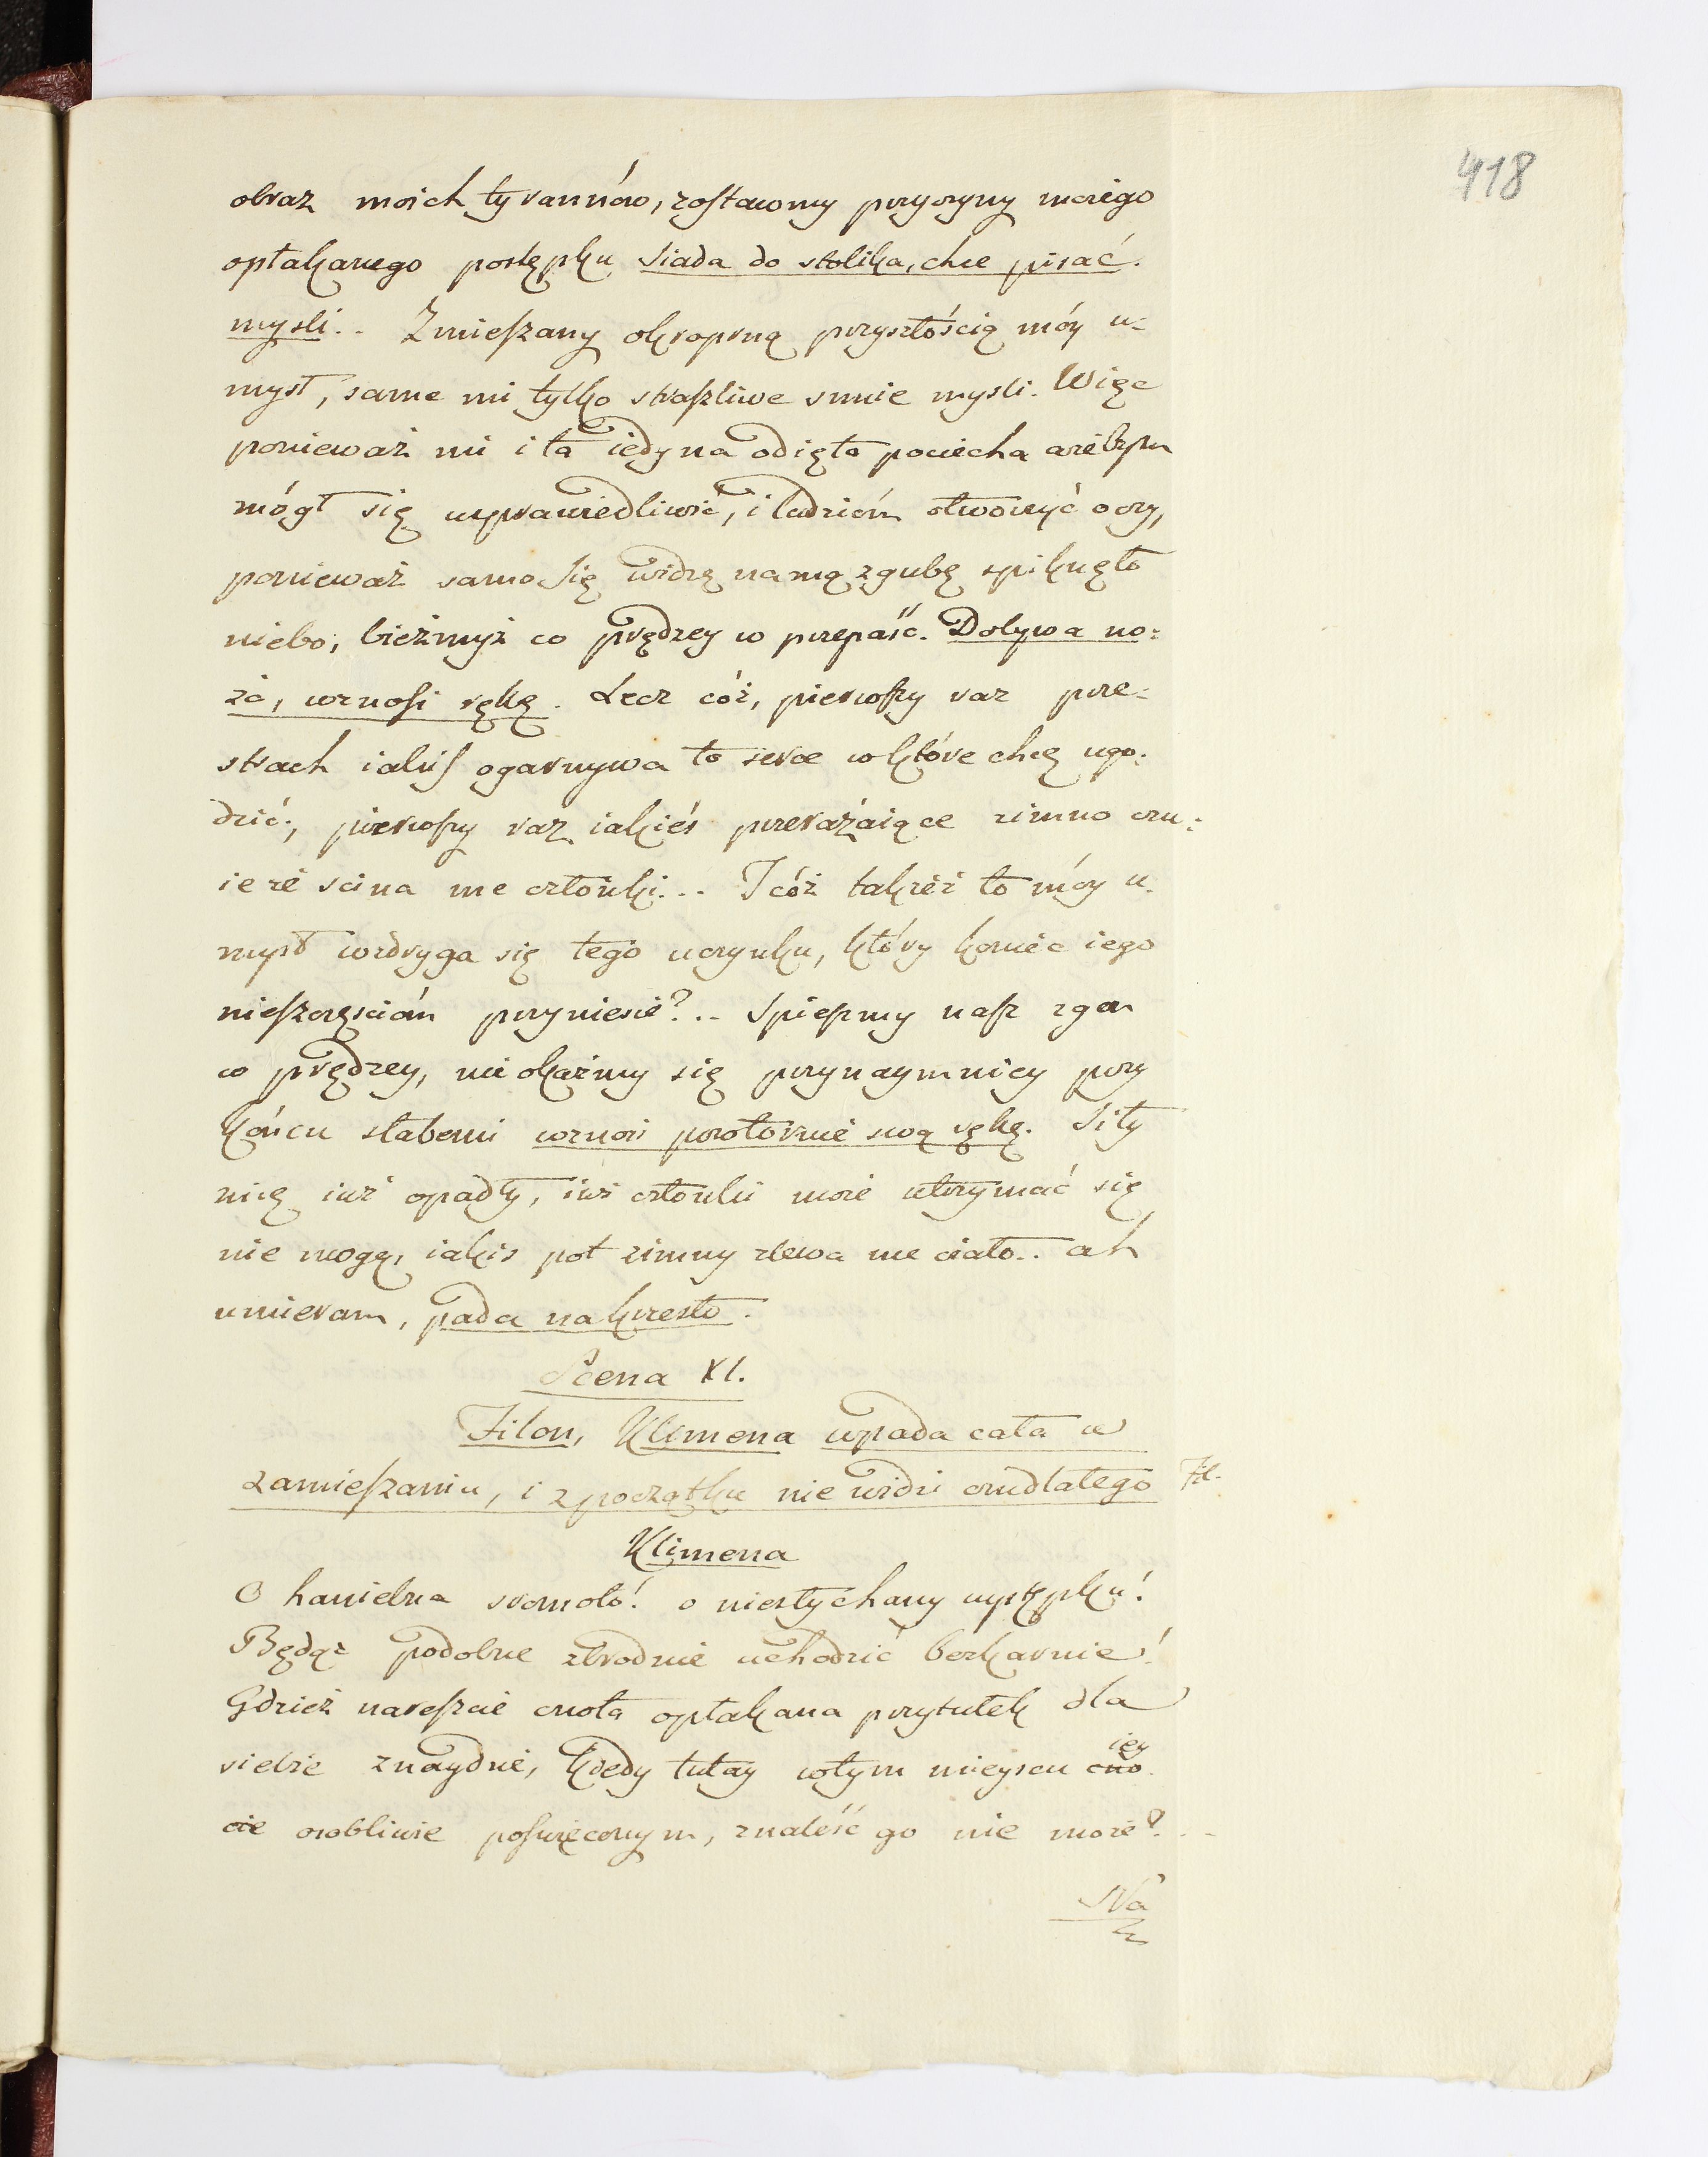 418
obraz moich tyrannów, zostawmy przyczyny moiego
opłakanego postępku Siada do stolika, chce pisać.
mysli.. Zmieszany okropną przyszłością móy u-
mysł, same mi tylko straszliwe snuie mysli. Więc
ponieważ mi i ta iedyna odięta pociecha ażebym
mógł się usprawiedliwić, i ludzióm otworzyć oczy,
ponieważ samo się widzę na mą zgubę spiknęło
niebo, bieżmyż co prędzey w przepaść. Dobywa no-
ża, wznosi rękę. Lecz cóż, pierwszy raz prze-
strach iakiś ogarnywa to serce w które chcę ugo-
dzić, pierwszy raz iakieś przerażaiące zimno czu-
ie że scina me członki... I cóż takżeż to móy u-
mysł wzdryga się tego uczynku, który koniec iego
nieszczęścióm przyniesie?.. Spieszmy nasz zgon
co prędzey, nie okażmy się przynaymniey przy
końcu słabemi wznosi powtórnie swą rękę. Siły
mię iuż opadły, iuż członki moie utrzymać się
nie mogą, iakis pot zimny zlewa me ciało.. ah
umieram, pada na krzesło.
Scena XI.
Filon, Klimena wpada cała w
zamieszaniu, i z początku nie widzi omdlałego Fil.
Klimena
O haniebna sromoto! o niesłychany występku!
Będąż podobne zbrodnie uchodzić bezkarnie!
Gdzież nareszcie cnota opłakana przytułek dla
siebie znaydzie, kiedy tutay w tym mieyscu cno- iey
cie osobliwie poswięconym, znaleść go nie może?...
Na